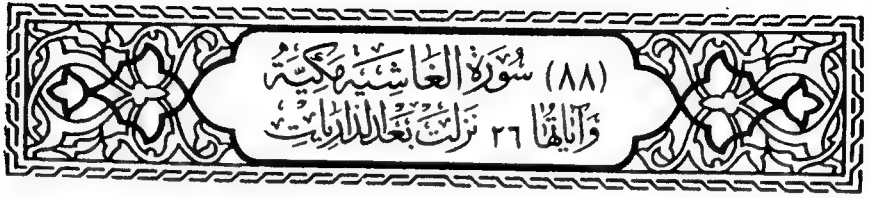 (٨٨) سُورَةُ الغَاشِيَةِ مَكِّيَّةٌ
وَآيَاتُهَا ٢٦ نَزَلَتْ بَعْدَ الذَّارِيَاتِ